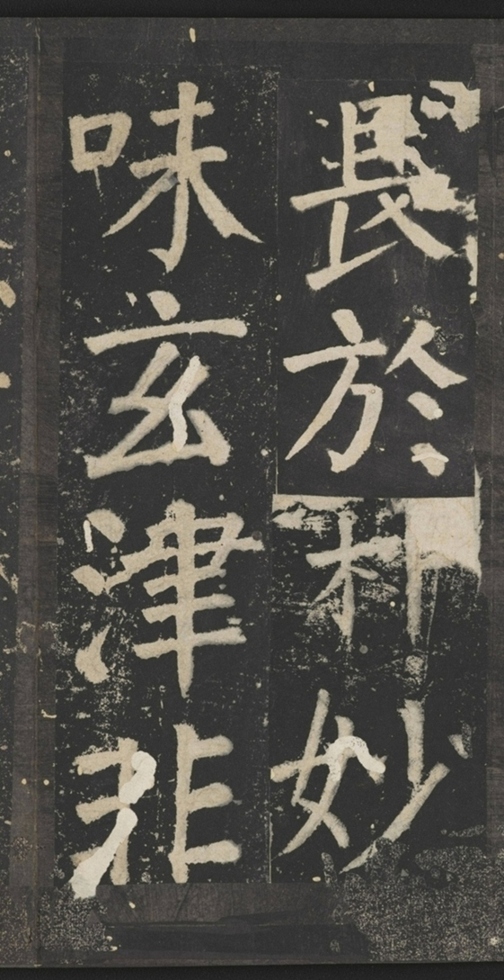 長於妙
味玄津非